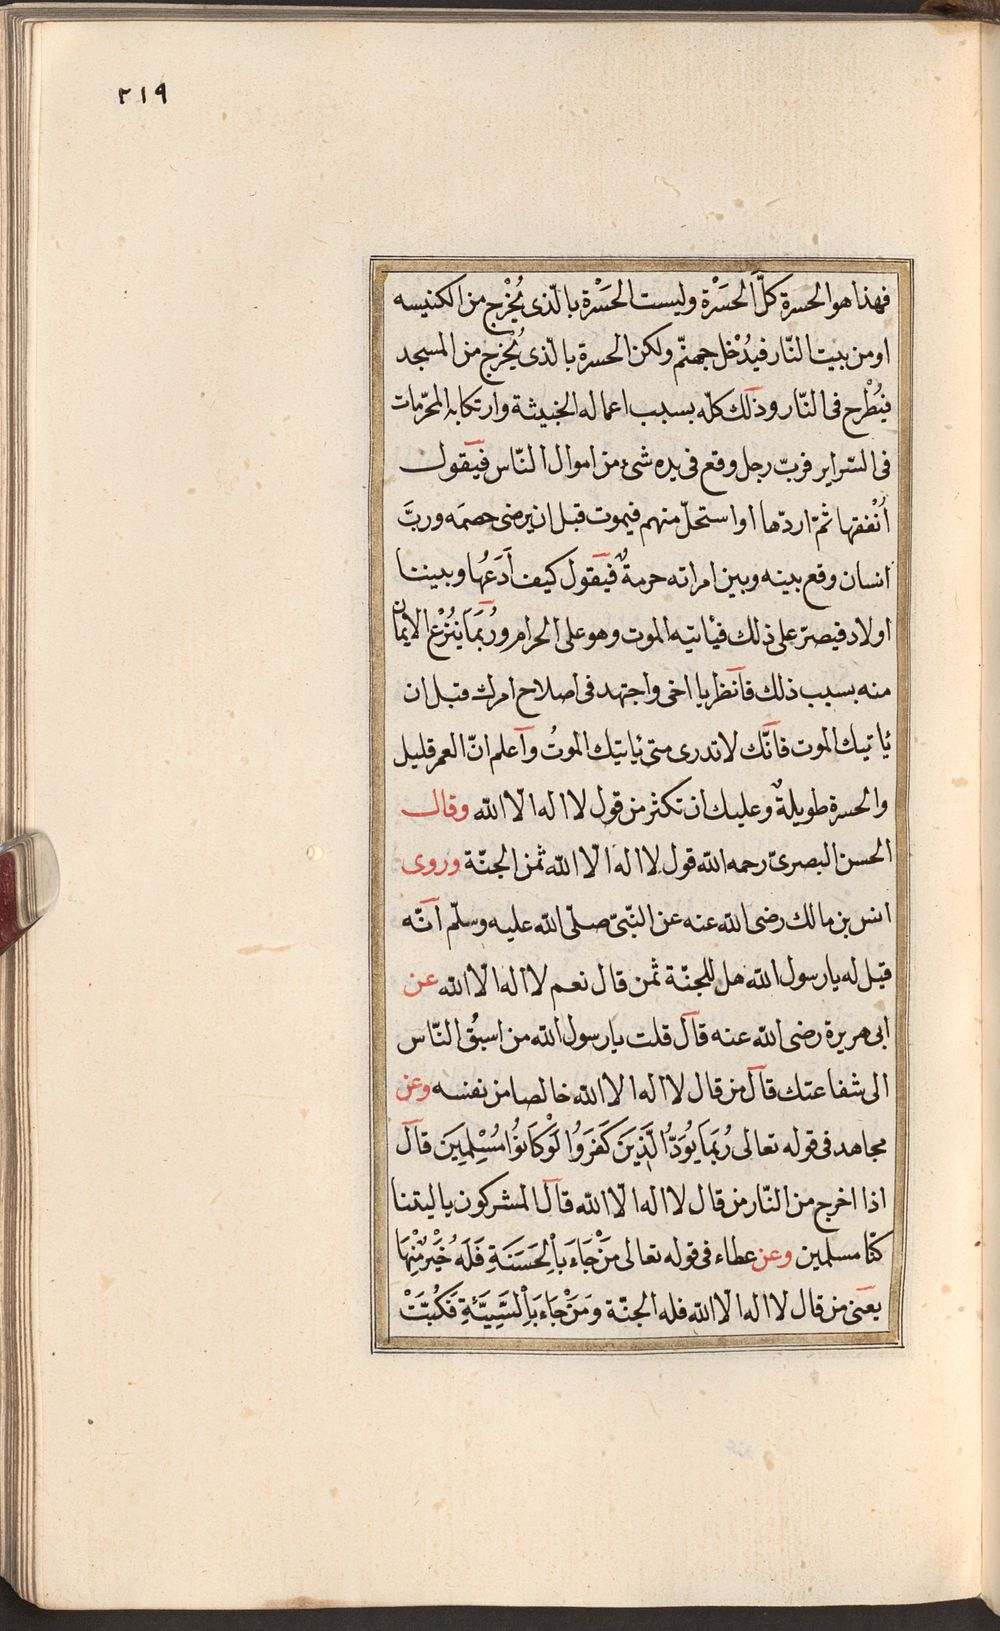 ٢١٩
فهذا هو الحسرة كلّ الحَسْرة وليست الحَسْرة بالّذى يُخْرج من الكنيسه
او من بيت النّار فيُدْخل جهنّم ولكن الحسرة بالّذى يُخْرج من المسجد
فيُطْرح فى النّار وذلك كلّه بسبب اعماله الخبيثة وارتكابه المحرّمات
فى السّراير فربّ رجل وقع فى يده شئ من اموال النّاس فيقول
اُنْفقها ثمّ اردّها او استحلّ منهم فيموت قبل ان يرضى خصمَه وربَّ
انسان وقع بينه وبين امراته حرمةٌ فيقول كيف اَدَعُها وبيننا
اولاد فيصرّ على ذلك فيأتيه الموت وهو على الحرام ورُبَمَا يُنْزعُ الايمان
منه بسبب ذلك فانظر يا اخى واجتهد فى اصلاح امرك قبل ان
يأتيك الموت فانّك لا تدرى متى يأتيك الموتُ واعلم انّ العمر قليل
والحسرة طويلةٌ وعليك ان تكثر من قول لا اله الّا الله وقال
الحسن البصرىّ رحمه الله قول لا اله الّا الله ثمن الجنّة وروى
انس بن مالك رضى الله عنه عن النّبىّ صلّى الله عليه وسلّم انّه
قيل له يا رسول الله هل للجنّة ثمن قال نعم لا اله الّا الله عن
ابى هريرة رضى الله عنه قال قلت يا رسول الله من اسبقُ النّاس
الى شفاعتك قال من قال لا اله الّا الله خالصا من نفسه وعن
مجاهد فى قوله تعالى رُبَمَا يَوَدُّ الَّذِينَ كَفَرُوا لَوْ كَانُوا مُسْلِمِينَ قال
اذا اخرج من النّار من قال لا اله الّا الله قال المشركون يا ليتنا
كنّا مسلمين وعن عطاء فى قوله تعالى مَنْ جَاءَ بِالْحَسَنَةِ فَلَهُ خَيْرٌ مِنْهَا
يعنى من قال لا اله الّا الله فله الجنّة وَمَنْ جَاءَ بِالسَّيِّئَةِ فَكُبَّتْ